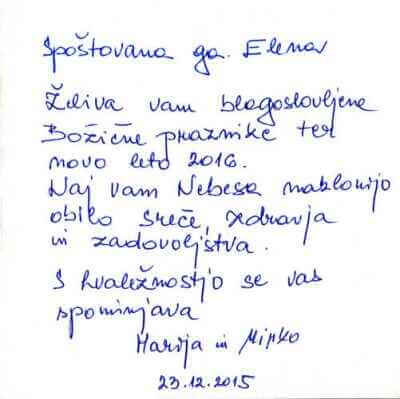 Spoštovana ga. Elena
Želiva vam blagoslovljene
Božične praznike ter
novo leto 2016.
Naj vam Nebesa naklonijo
obilo sreče, zdravja
in zadovoljstva.
S hvaležnostjo se vas
spominjava
Marija in Mirko
23.12.2015